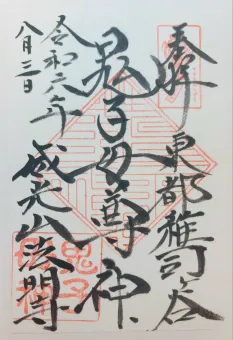 奉拝
東都雑司ヶ谷
鬼子母尊神
威光山法明寺
令和六年
八月三日
鬼子母神